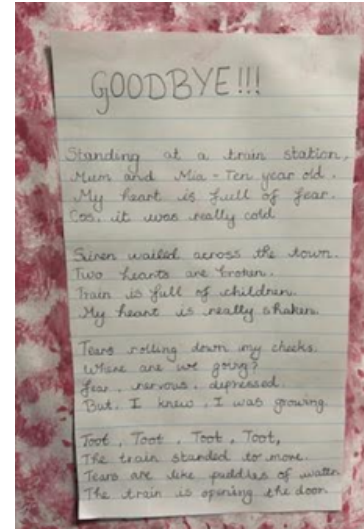 GOODBYE!!!
Standing at a train station,
Mum and Mia - Ten year old.
My heart is full of fear.
Cos, it was really cold
Siren wailed across the town.
Two hearts are broken.
Train is full of children.
My heart is really shaken.
Tears rolling down my cheeks.
Where are we going?
Fear, nervous, depressed.
But, I knew, I was growing.
Toot, Toot, Toot, Toot,
The train standed to move.
Tears are like puddles of water
The train is opening the door